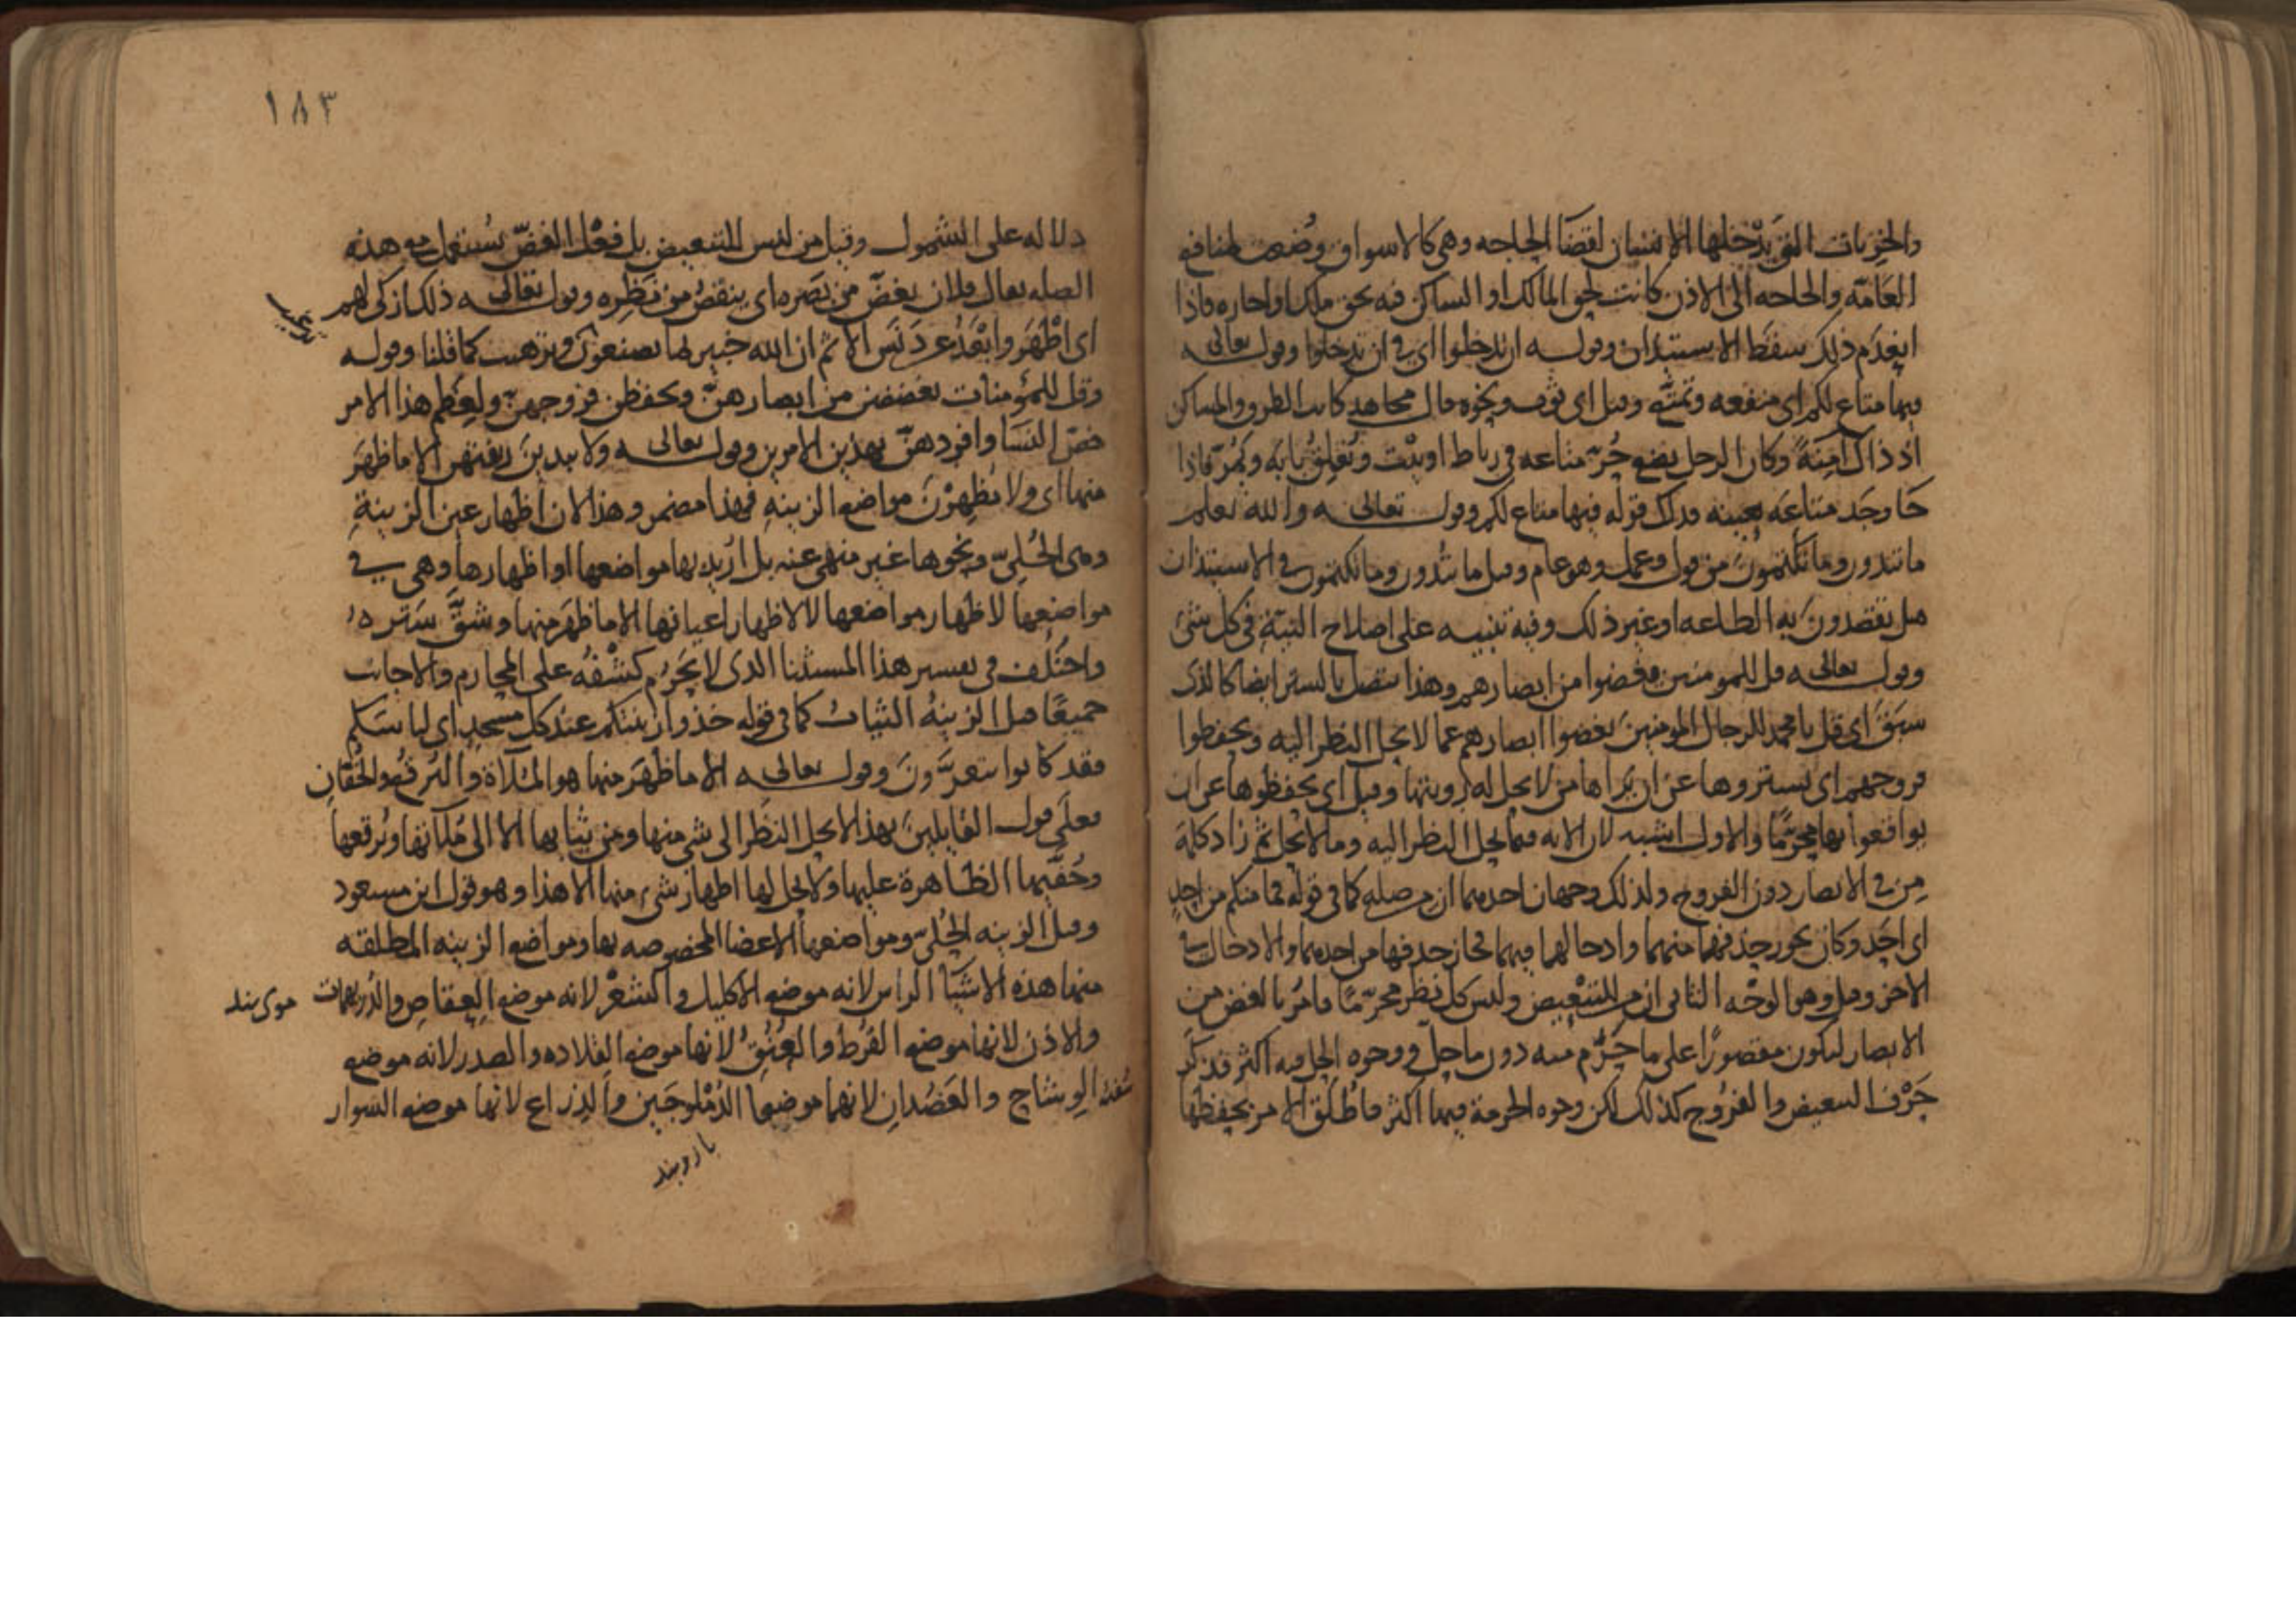 والخربات التي يدخلها الانسان لقضا الحاجه وهي كالاسواق وضعت لمنافع
العامة والحاجه الى الاذن كانت لحق المالك او الساكن فيه بحق ملك او اجاره فاذا
انعدم ذلك سقط الاستيذان وقوله ان تدخلوا اي في ان تدخلوا وقوله تعالى
فيها متاع لكم اي منفعه وتمتع وقيل اي ثوب ونحوه قال مجاهد كانت الطرق والمساكن
اذ ذاك امنة وكان الرجل يضع متاعه في رباط او بيت ويغلق بابه ويمر فاذا
جا وجد متاعه بعينه فذلك قوله فيها متاع لكم وقوله تعالى والله يعلم
ما تبدون وما تكتمون من قول وعمل وهو عام وقيل ما تبدون وما تكتمون في الاستيذان
هل تقصدون به الطاعه او غير ذلك وفيه تنبيه على اصلاح النية في كل شئ
وقوله تعالى قل للمومنين يغضوا من ابصارهم وهذا يتصل بالستر ايضا كالذي
سبق اي قل يا محمد للرجال المومنين يغضوا ابصارهم عما لا يحل النظر اليه ويحفظوا
فروجهم اي يستروها عن ان يراها من لا يحل له رويتها وقيل اي يحفظوها عن ان
يواقعوا بها محرما والاول اشبه لان الايه فيما يحل النظر اليه وما لا يحل ثم زاد كلمة
من في الابصار دون الفروج ولذلك وجهان احدهما ان من صله كما في قوله فما منكم من احد
اي احد وكان يجوز حذفها منهما وادخالها فيهما فجاز حذفها من احدهما والادخال في
الاخر وقيل وهو الوجه الثاني ان من للتبعيض وليس كل نظر محرما فامر بالغض من
الابصار ليكون مقصورا على ما حرم منه دون ما حل ووجوه الحل فيه اكثر فذكر
حرف التبعيض والفروج كذلك لكن وجوه الحرمة فيها اكثر فاطلق الامر بحفظها
١٨٣
دلاله على الشمول وقيل من ليس للتبعيض بل فعل الغض يستعمل مع هذه
الصله يقال فلان يغض من بصره اي ينقص من نظره وقوله تعالى ذلك ازكى لهم
اي اطهر وابعد عن دنس الاثم ان الله خبير بما يصنعون وترهيب كما قلنا وقوله
وقل للمؤمنات يغضضن من ابصارهن ويحفظن فروجهن ولعظم هذا الامر
خص النسا وافردهن بهذين الامرين وقوله تعالى ولا يبدين زينتهن الا ما ظهر
منها اي ولا يظهرن مواضع الزينة فهذا مضمر وهذا لان اظهار عين الزينة
وهي الحلي ونحوها غير منهي عنه بل اريد بها مواضعها او اظهارها وهي في
مواضعها لاظهار مواضعها لا لاظهار اعيانها الا ما ظهر منها وشق ستره
واختلف في تفسير هذا المستثنا الذي لا يحرم كشفه على المحارم والاجانب
جميعا قيل الزينة الثياب كما في قوله خذوا زينتكم عند كل مسجد اي لباسكم
فقد كانوا يتعرون وقوله تعالى الا ما ظهر منها هو الملآة والبرقع والخفان
فعلى قول القايلين بهذا لا يحل النظر الى شي منها ومن ثيابها الا الى ملآتها وبرقعها
وخفيها الظاهرة عليها ولا يحل لها اظهار شي منها الا هذا وهو قول ابن مسعود
وقيل الزينه الحلي ومواضعها الاعضا المخصوصه بها ومواضع الزينه المطلقه
منها هذه الاشيا الراس لانه موضع الاكليل والشعر لانه موضع العقاص والدريهمات
موى بند
والاذن لانها موضع القرط والعنق لانها موضع القلاده والصدر لانه موضع
الوشاح والعضدان لانهما موضعا الدملوجين والذراع لانها موضع السوار
بازوبند